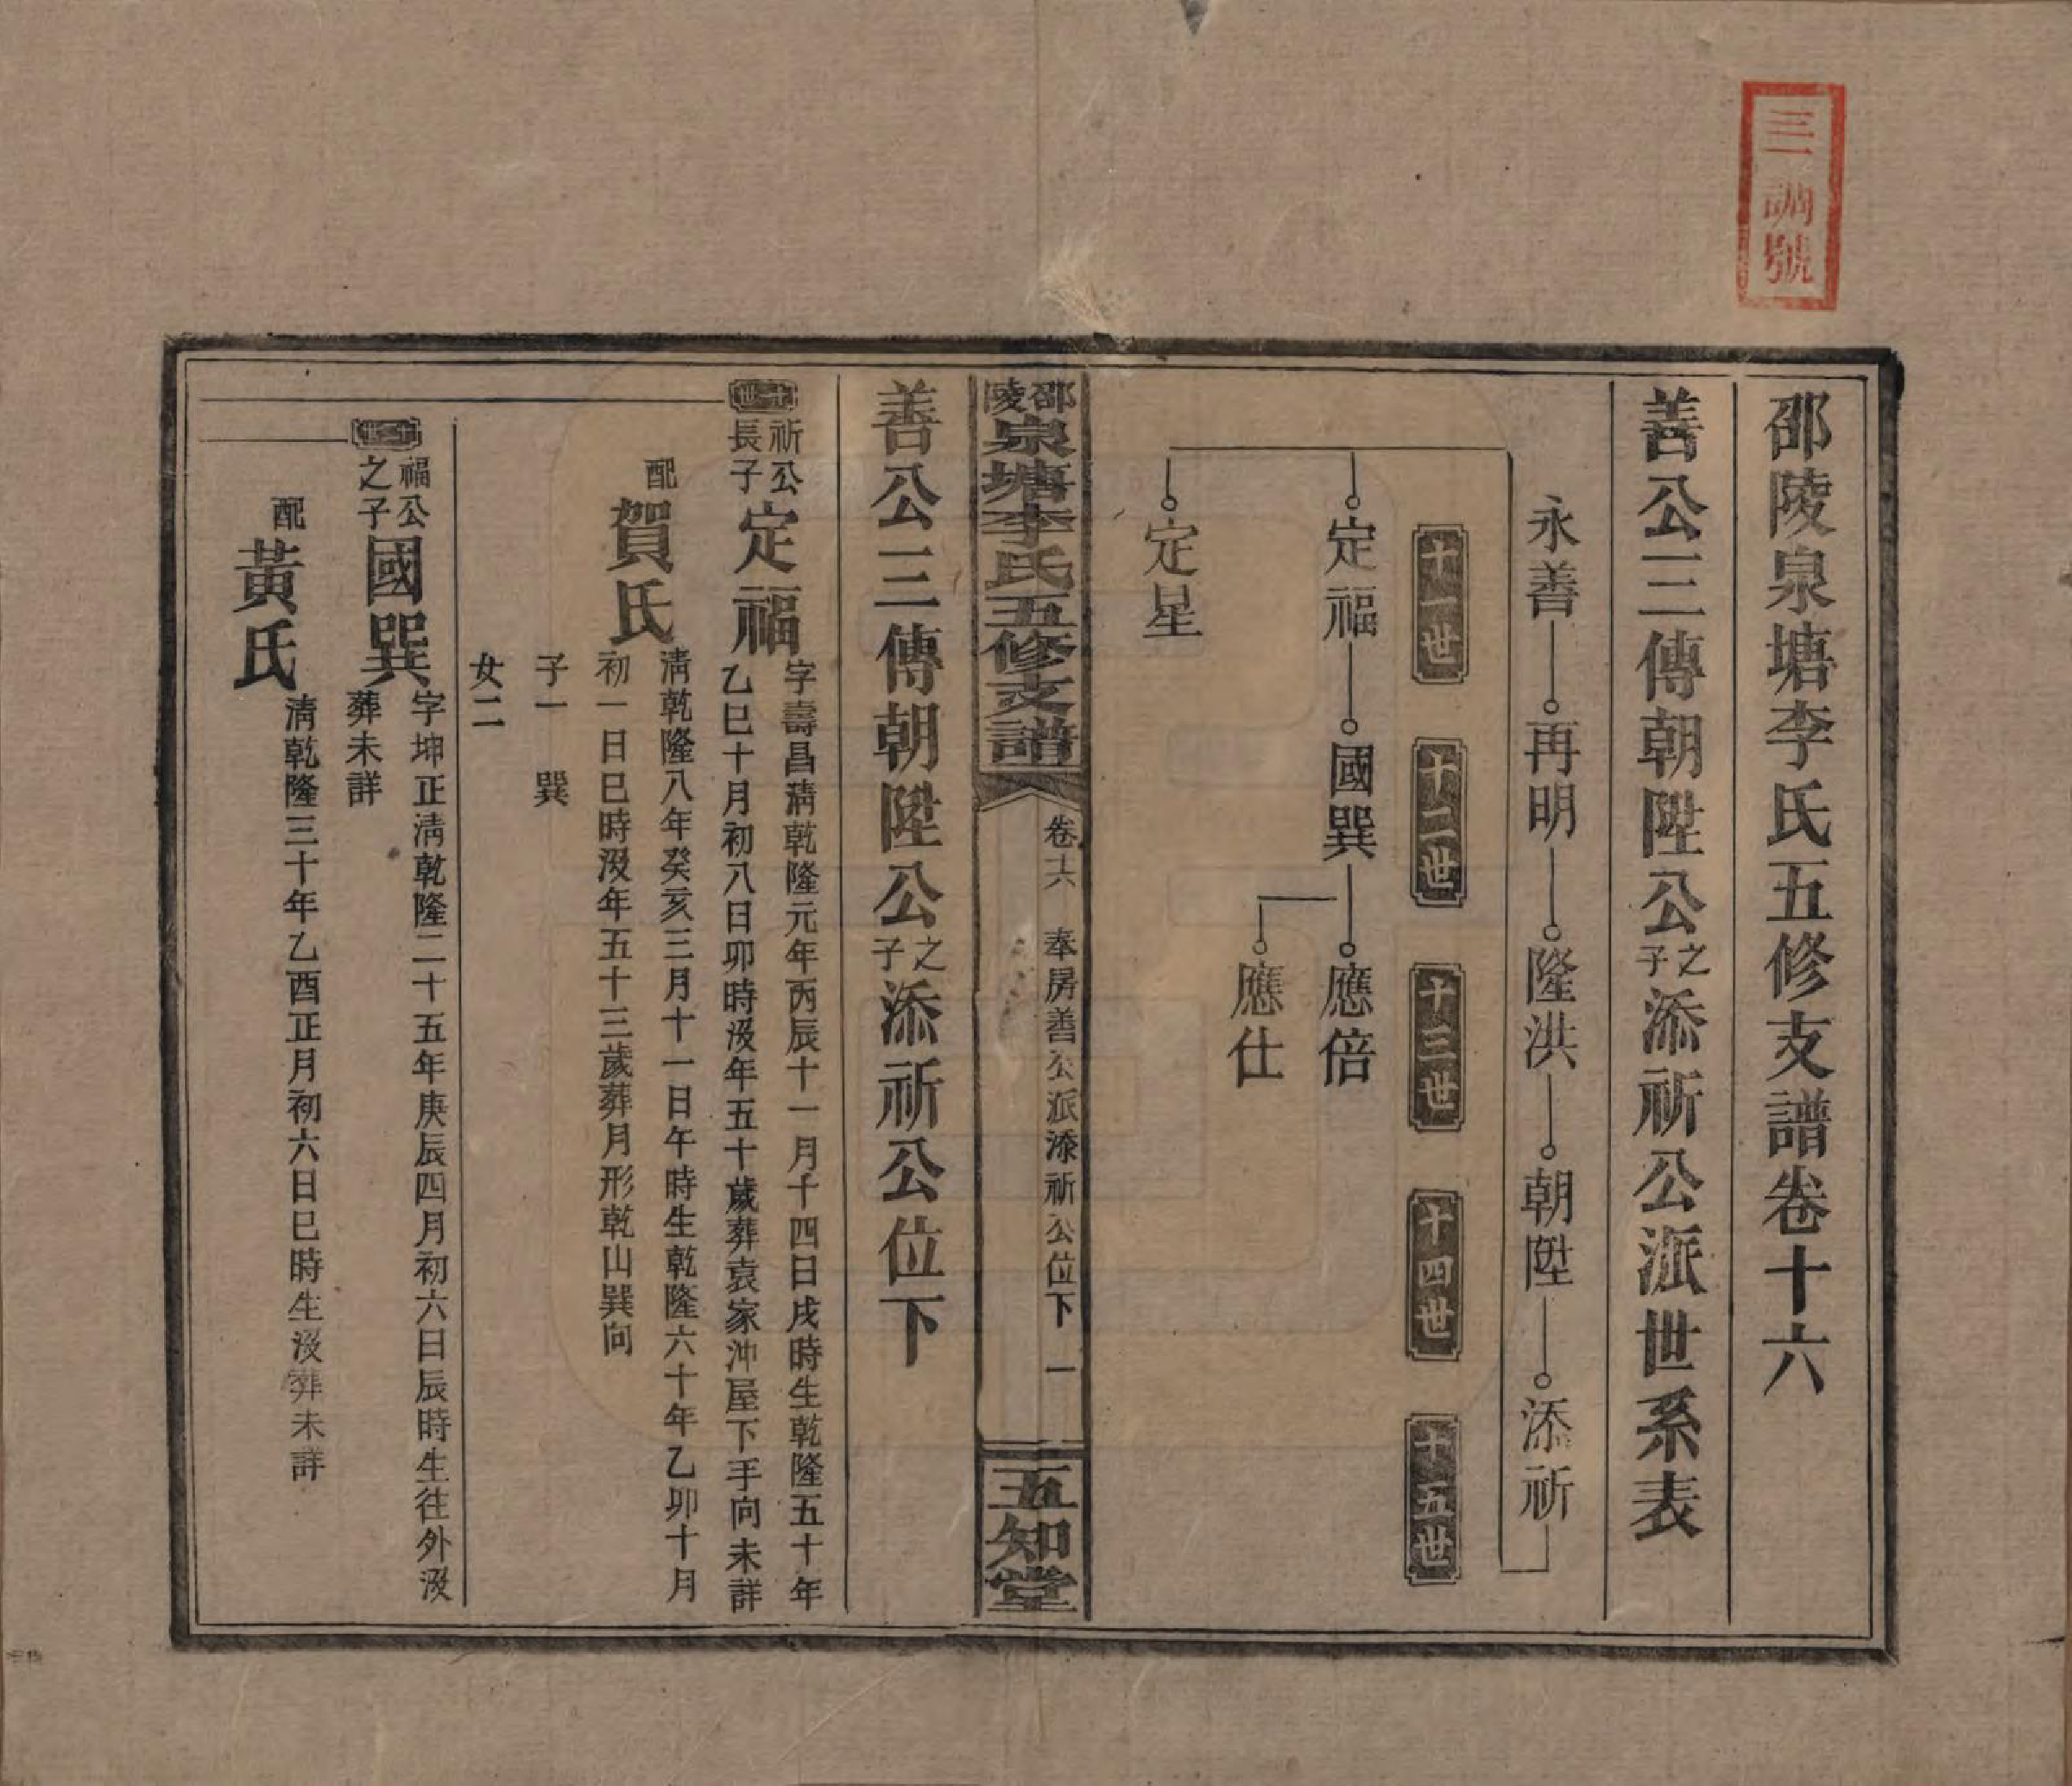 三調號
邵陵泉塘李氏五修支譜卷十六
善公三傳朝陞公之子添祈公派世系表
永善 再明 隆洪 朝陞 添祈
十一世 十二世 十三世 十四世 十五世
定福 國巽 應倍
應仕
定星
邵陵泉塘李氏五修支譜
卷十六 奉房善公派添祈公位下 一
五知堂
善公三傳朝陞公之子添祈公位下
十一世
祈公長子 定福
字壽昌淸乾隆元年丙辰十一月十四日戌時生乾隆五十年
乙巳十月初八日卯時歿年五十歲葬袁家冲屋下手向未詳
配 賀氏
淸乾隆八年癸亥三月十一日午時生乾隆六十年乙卯十月
初一日巳時歿年五十三歲葬月形乾山巽向
子一 巽
女二
十二世
福公之子 國巽
字坤正淸乾隆二十五年庚辰四月初六日辰時生往外歿
葬未詳
配 黃氏
淸乾隆三十年乙酉正月初六日巳時生歿葬未詳